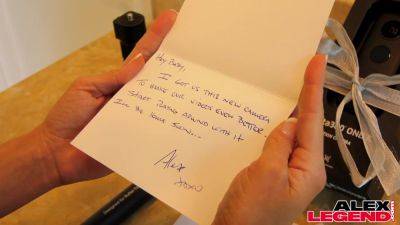 Hey Baby,
I GOT US THIS NEW CAMERA
TO MAKE OUR VIDEOS EVEN BETTER
START PLAYING AROUND WITH IT
I'LL BE HOME SOON...
Alex
xoxo
ta360 ONE
ALEX
LEGEND.COM